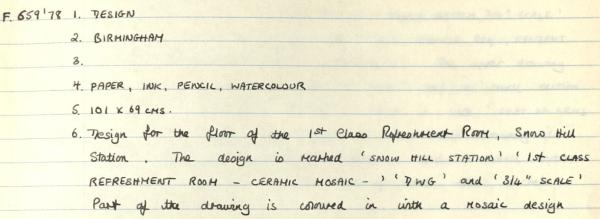 F. 659'78 1. DESIGN
2. BIRMINGHAM
3.
4. PAPER, INK, PENCIL, WATERCOLOUR
5. 101 x 69 CMS.
6. Design for the floor of the 1st Class Refreshment Room, Snow Hill
Station. The design is marked 'SNOW HILL STATION' '1ST CLASS
REFRESHMENT ROOM - CERAMIC MOSAIC -' 'DWG' and '3/4" SCALE'
Part of the drawing is coloured in with a mosaic design